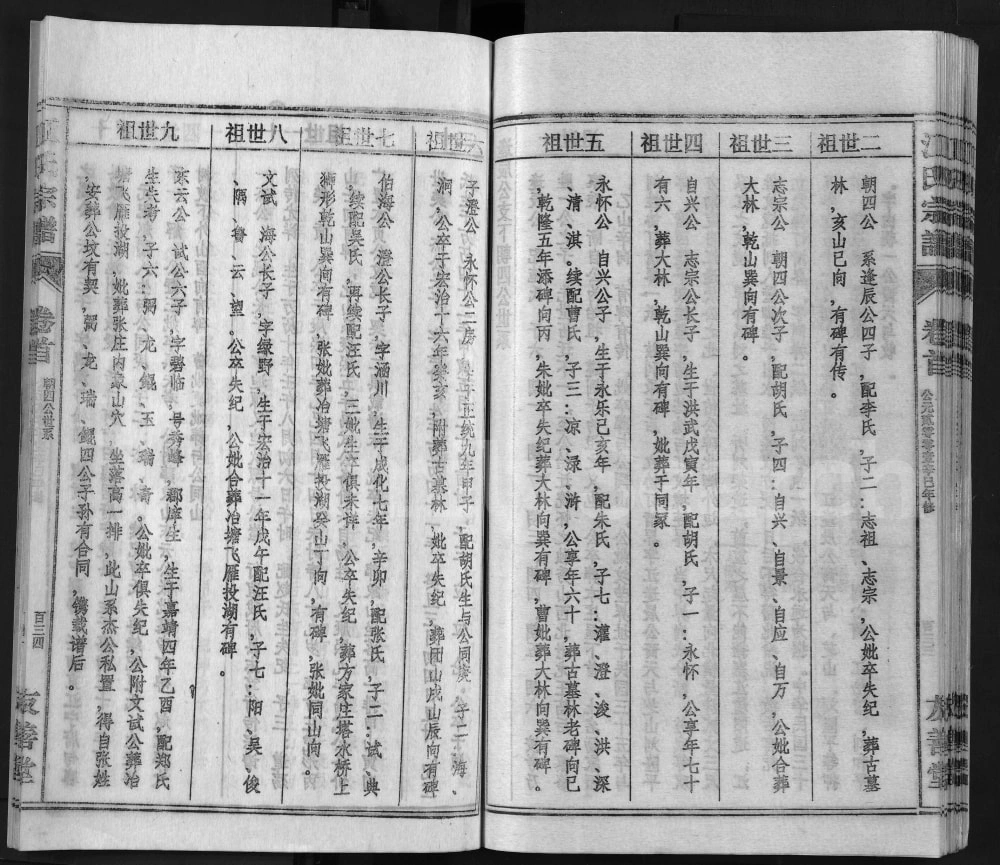 江氏宗谱
卷首
公元贰零零壹辛巳年修
友善堂
二世祖
朝四公 系逢辰公四子，配李氏，子二：志祖、志宗，公妣卒失纪，葬古墓
林，亥山巳向，有碑有传。
三世祖
志宗公 朝四公次子，配胡氏，子四：自兴、自景、自应、自万，公妣合葬
大林，乾山巽向有碑。
四世祖
自兴公 志宗公长子，生于洪武戊寅年，配胡氏，子一：永怀，公享年七十
有六，葬大林，乾山巽向有碑，妣葬于同冢。
五世祖
永怀公 自兴公子，生于永乐己亥年，配朱氏，子七：灌、澄、浚、洪、深
、清、淇。续配曹氏，子三：凉、渌、浒，公享年六十，葬古墓林老碑向巳
，乾隆五年添碑向丙，朱妣卒失纪葬大林向巽有碑，曹妣葬大林向巽有碑。
六世祖
子澄公 永怀公二房，生于正统九年甲子，配胡氏生与公同庚。子二：海、
洞，公卒于宏治十六年癸亥，附葬古墓林，妣卒失纪，葬阳山戍山辰向有碑
七世祖
伯海公 澄公长子，字涵川，生于成化七年，辛卯，配张氏，子二：试、典
，续配吴氏，再续配汪氏，三妣生卒俱未详，公卒失纪，葬方家庄塔水桥上
狮形乾山巽向有碑，张妣葬冶塘飞雁投湖癸山丁向，有碑，张妣同山向。
八世祖
文试 海公长子，字绿野，生于宏治十一年戊午配汪氏，子七：阳、吴、俊
、隅、鲁、云、望。公卒失纪，公妣合葬冶塘飞雁投湖有碑。
九世祖
寒云公 试公六子，字碧临，号秀峰，郡庠生，生于嘉靖四年乙酉，配郑氏
生失考，子六：弼、龙、鲲、玉、瑞、奇。公妣卒俱失纪，公附文试公葬冶
塘飞雁投湖，妣葬张庄内冢山穴，坐落高一排，此山系杰公私置，得自张姓
，安葬公坟有契，弼、龙、瑞、鲲四公子孙有合同，镌载谱后。
宗谱
卷首
朝四公世系
百三四
友善堂